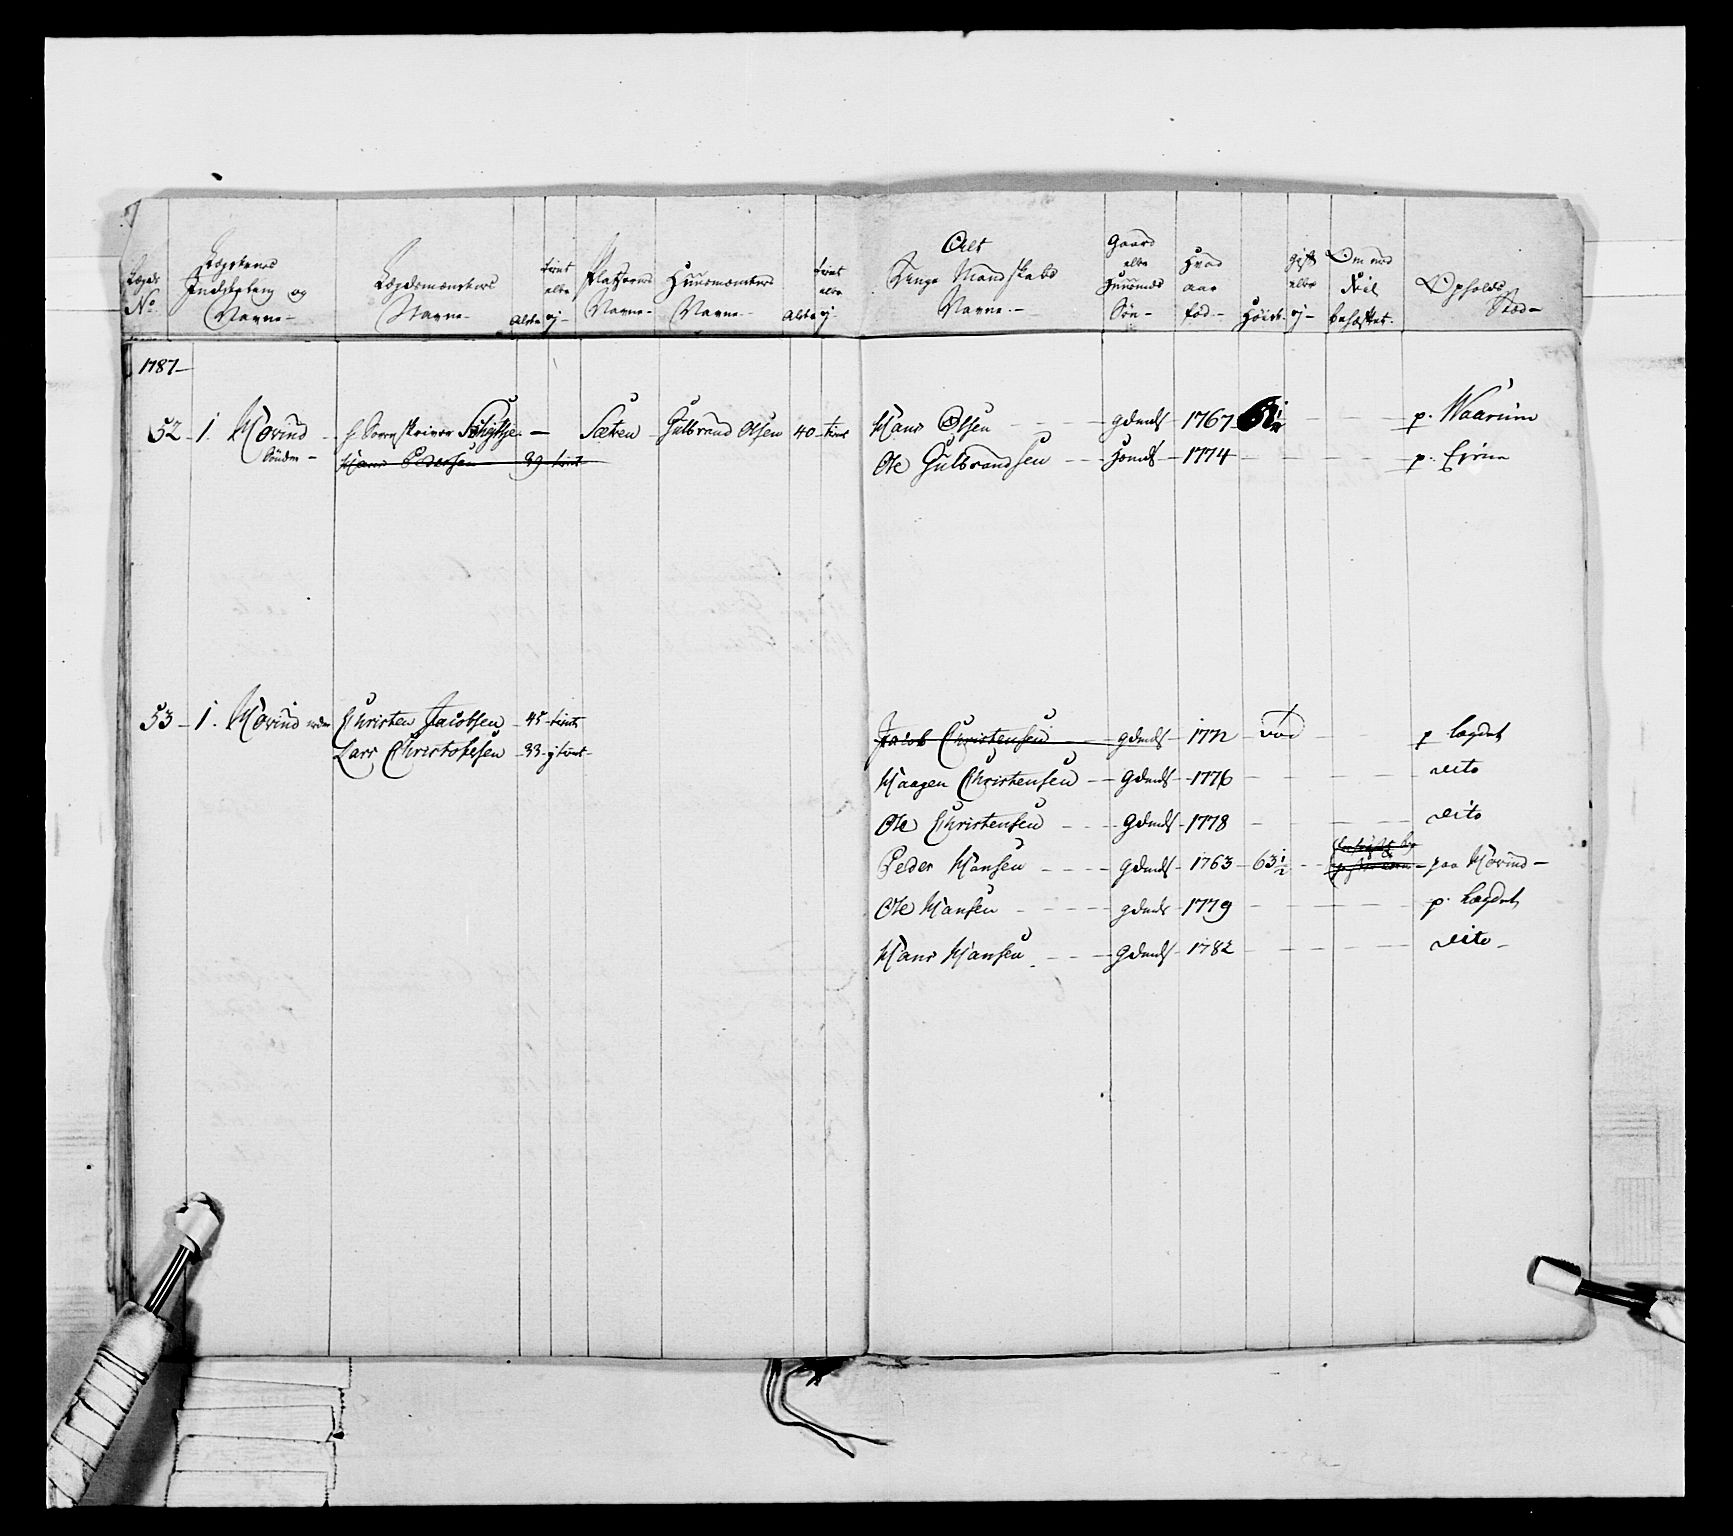 Lægds No.
Lægdenes Inddeeling og Navne
Lægdsmændenes Navne
Alder
tient eller ej
Pladsernes Navne
Huusmændenes Navne
Alder
tient eller ej
Alt Unge Mandskabs Navne
Gaard eller Huusmands Søn
Hvad aar fød
Høide
gift eller ej
Om med Feil behæftet
Opholds Sted
1787
52 1. Hovind Sorenskriver Sæteren Gulbrand Olsen 40 tient Hans Olsen gdmds 1767 p. Waarum
Søndre Hans Pedersen 39 tient Ole Gulbrandsen Hmds 1774 p.
53 1. Hovind nedre Christen Jacobsen 45 tient Jacob Christensen gdmds 1772 død p lægdet
Lars Christophersen 33 ej tient
Haagen Christensen gdmds 1776 dito
Ole Christensen gdmds 1778 dito
Peder Hansen gdmds 1763 63 1/2 paa Hovind
Ole Hansen gdmds 1779 p. Lægdet
Hans Hansen gdmds 1782 dito